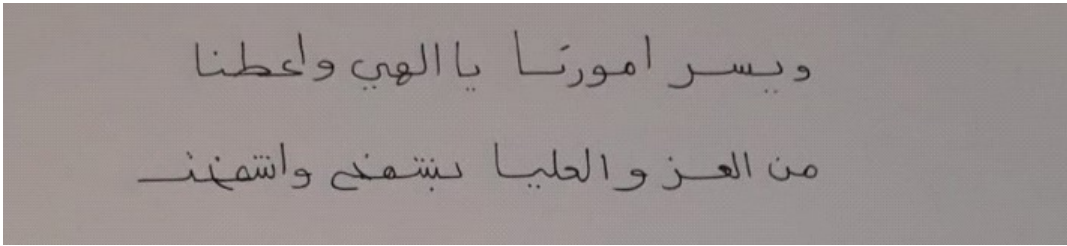 ويسر امورنا يا الهي واعطنا
من العز والعليا بشمخ واشمخت